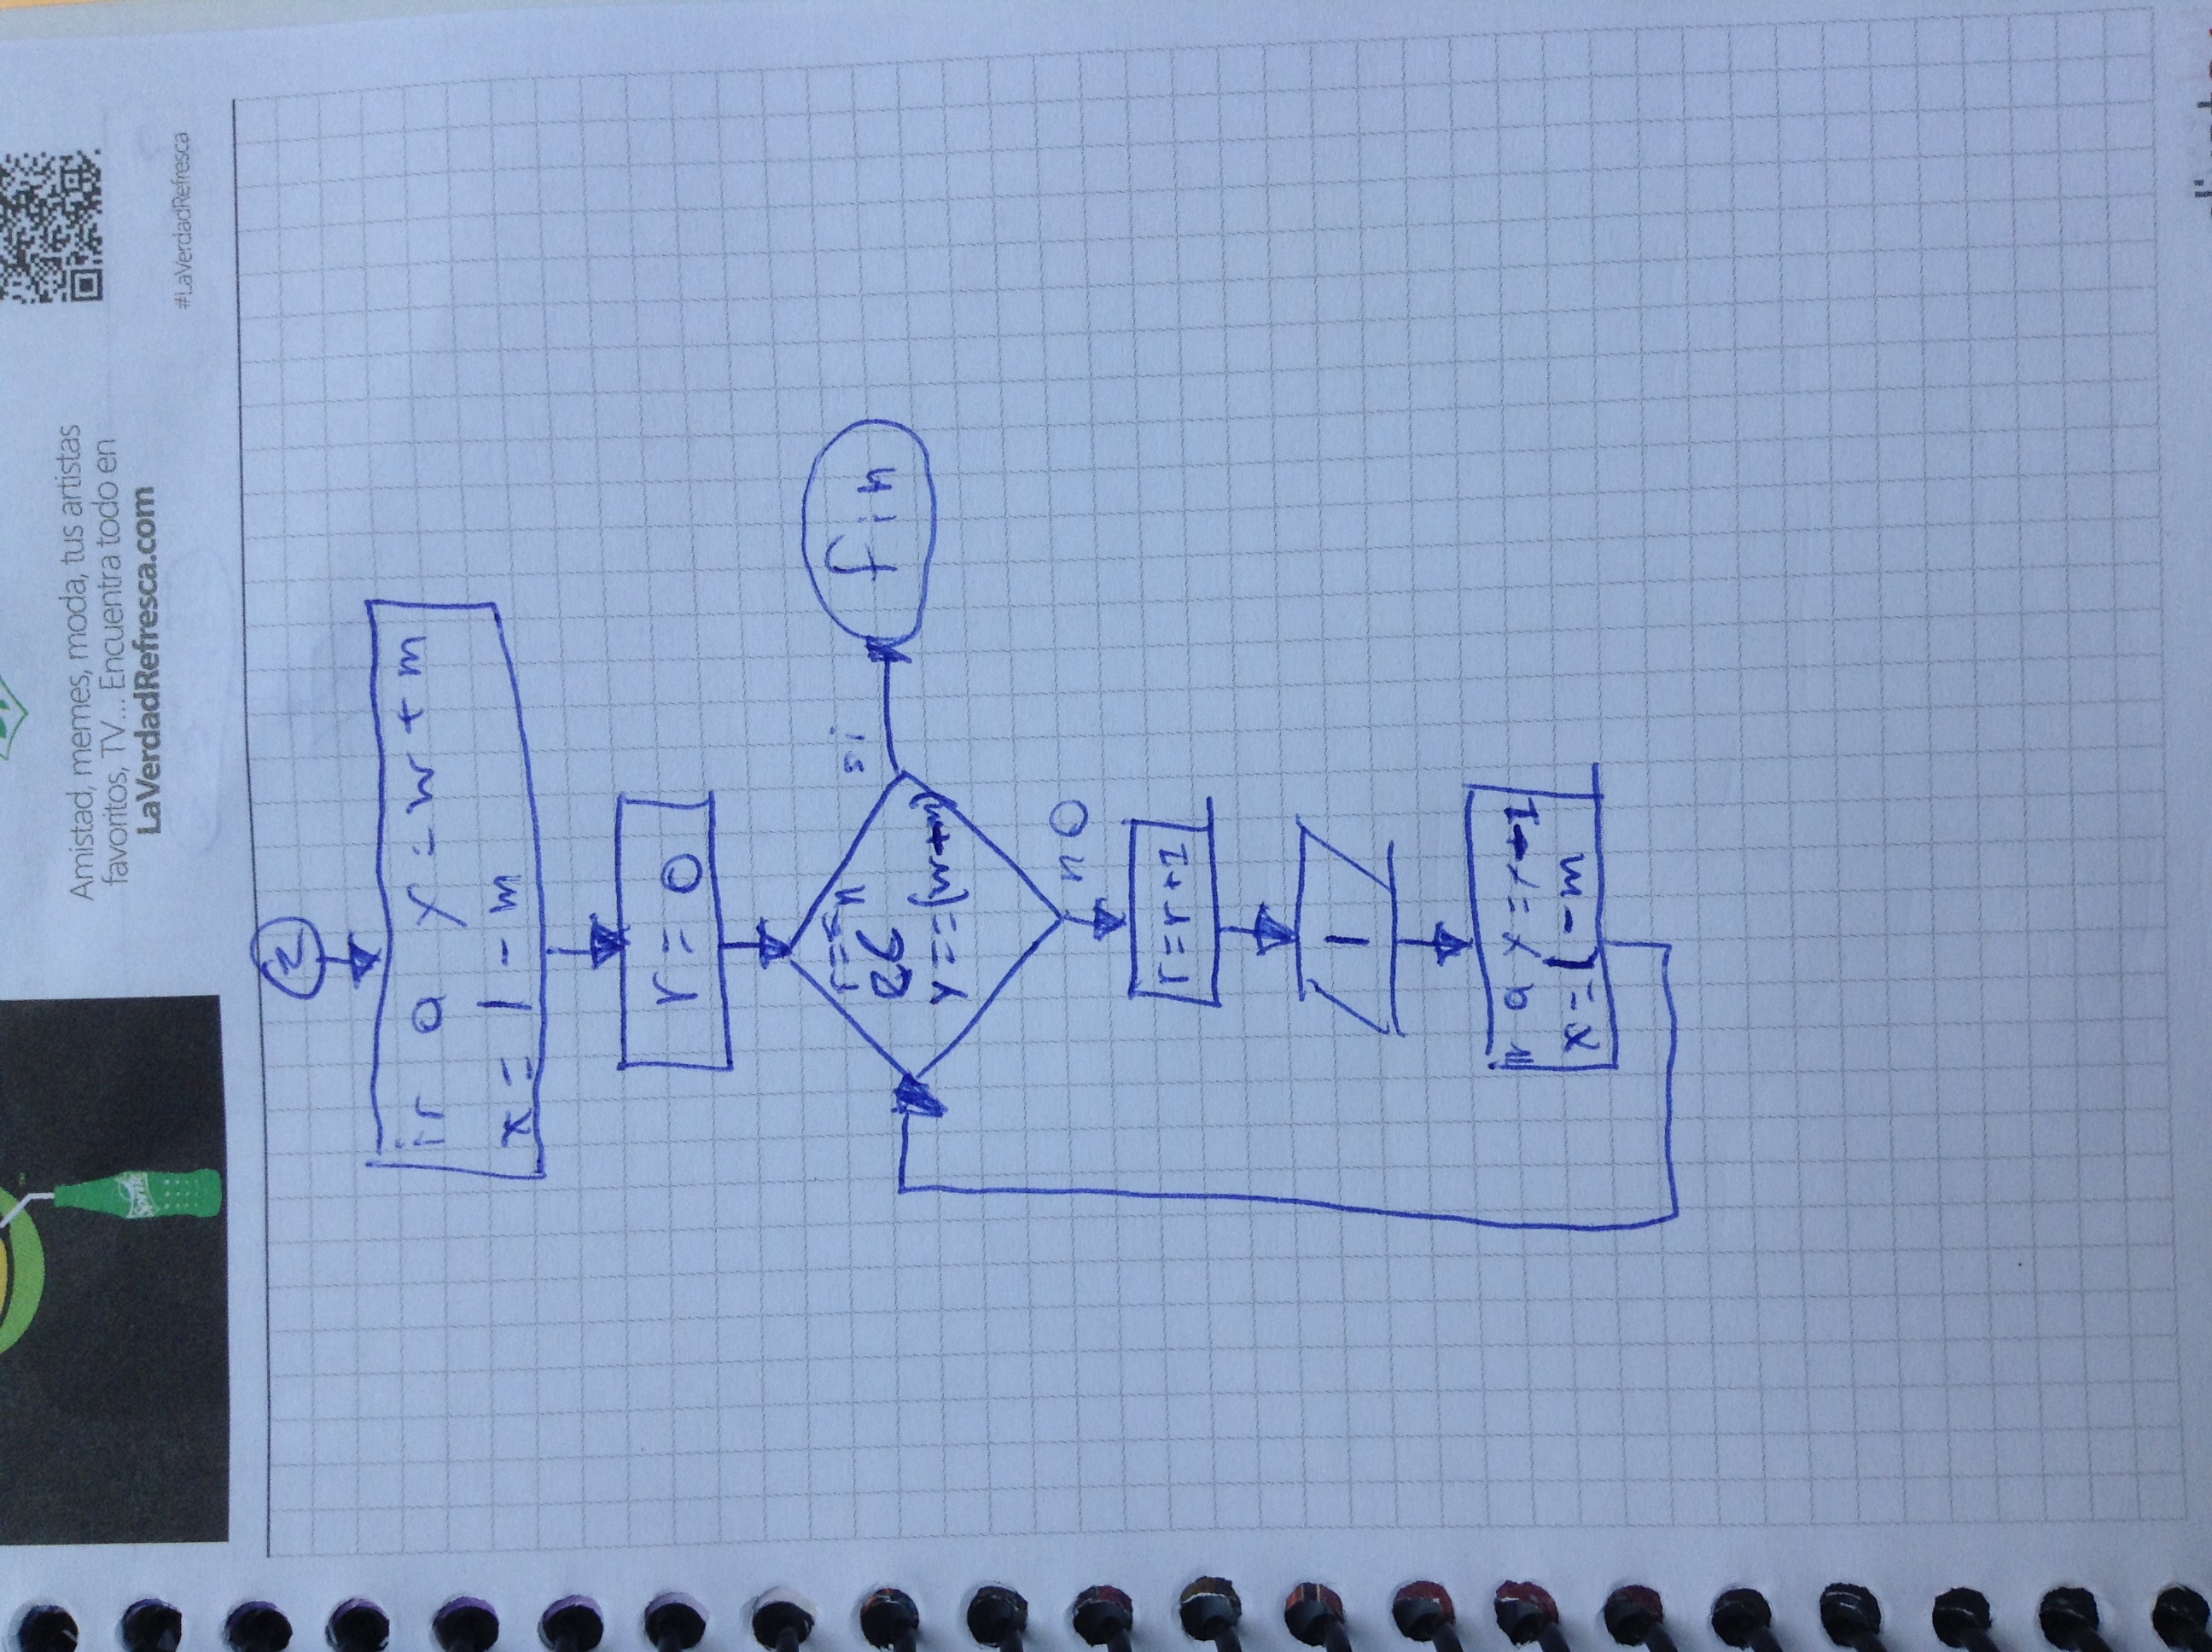 Sprite
TM
Amistad, memes, moda, tus artistas
favoritos, TV... Encuentra todo en
LaVerdadRefresca.com
#LaVerdadRefresca
2
ir a y = w + m
x = | - m
r = 0
r == n
y == (w+m)
si
fin
no
r = r + 1
|
ir a y =
x = | - m